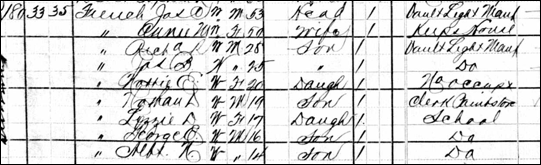 180 33 35 French Jas C W M 53 Head 1 Vault Light Manf
" Annie M W F 50 Wife 1 Keeps House
" Richd W M 28 Son 1 Vault Light Manf
" Jas W " 25 " 1 Do
" Hattie E W F 20 Daugh 1 No occupt
" W M 19 Son 1 Clerk
" Lizzie D W F 17 Daugh 1 School
" George E W M 16 Son 1 Do
" Albt N W " 14 Son 1 Do